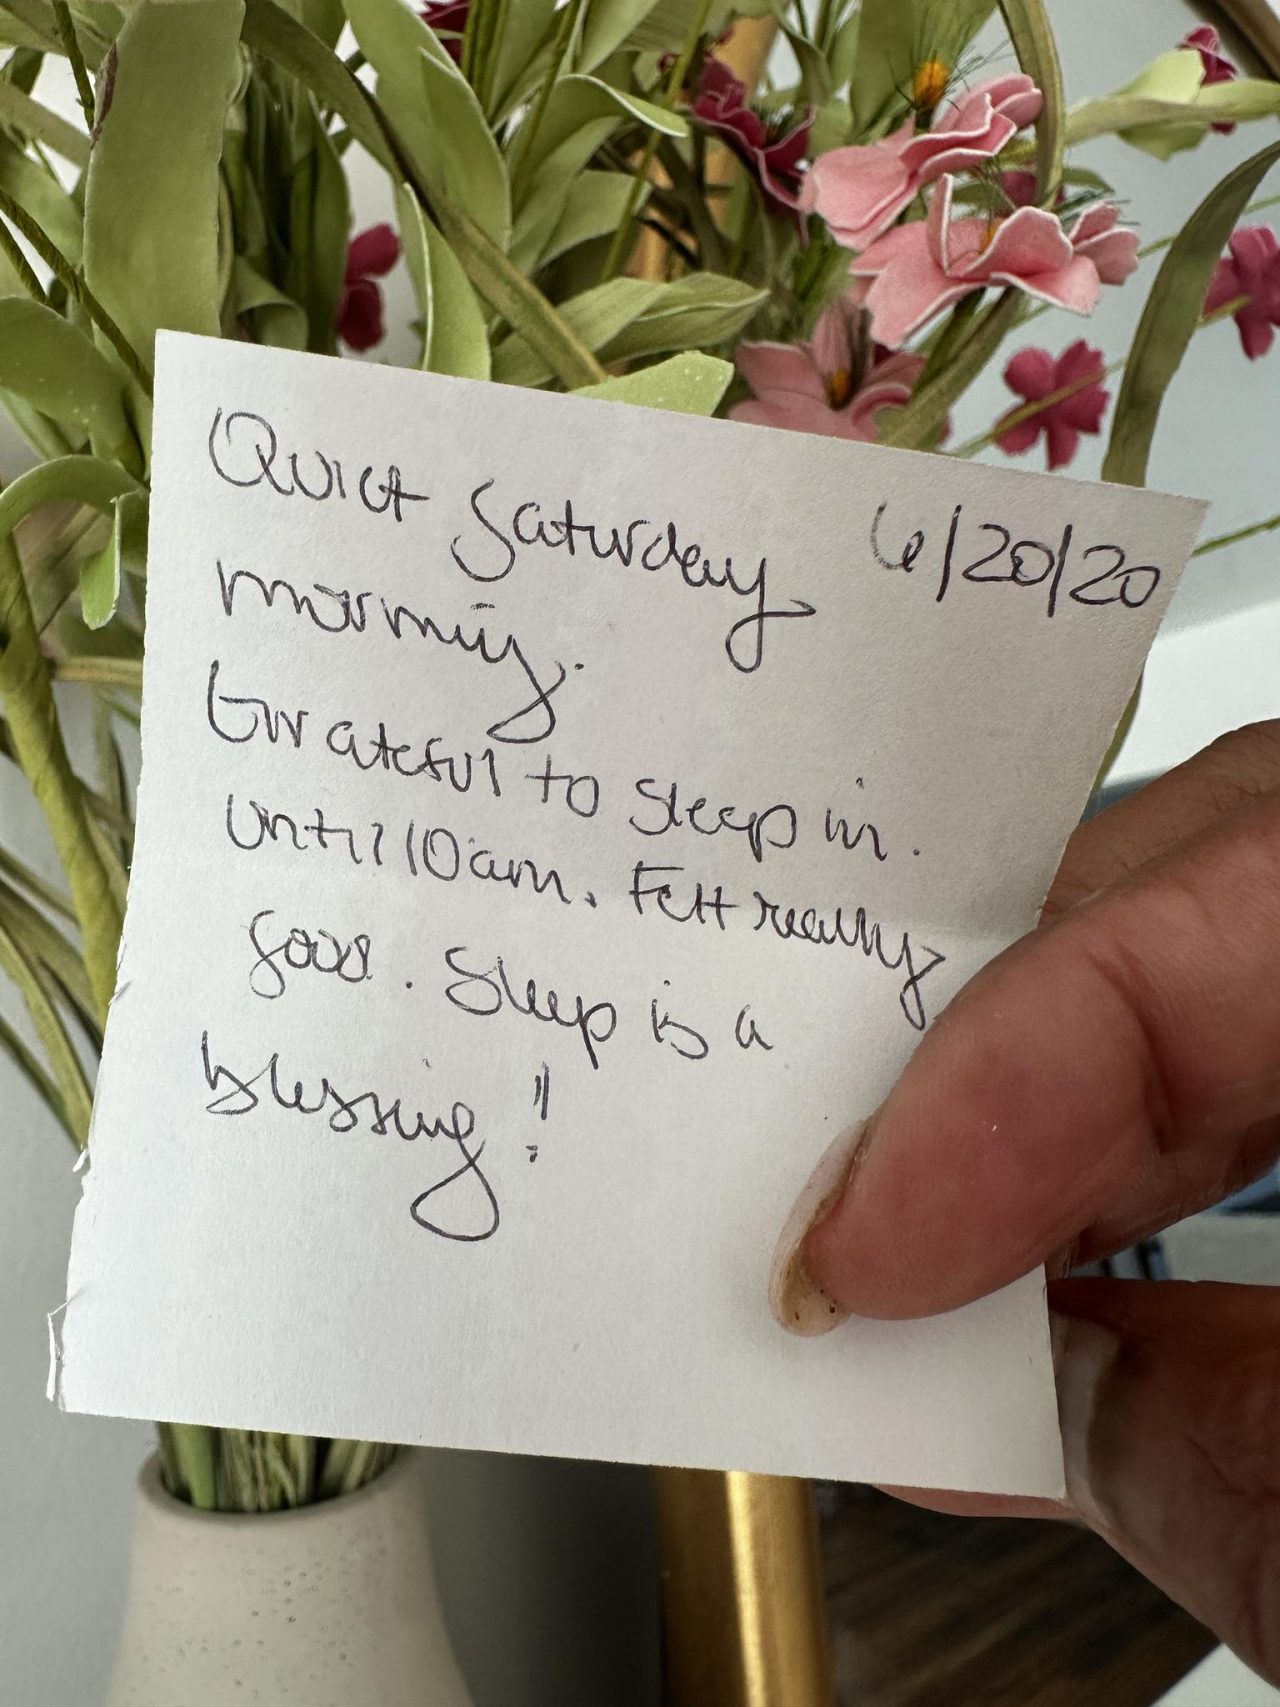 Quiet Saturday 6/20/20
morning.
Grateful to sleep in.
until 10am. Felt really
good. Sleep is a
blessing!